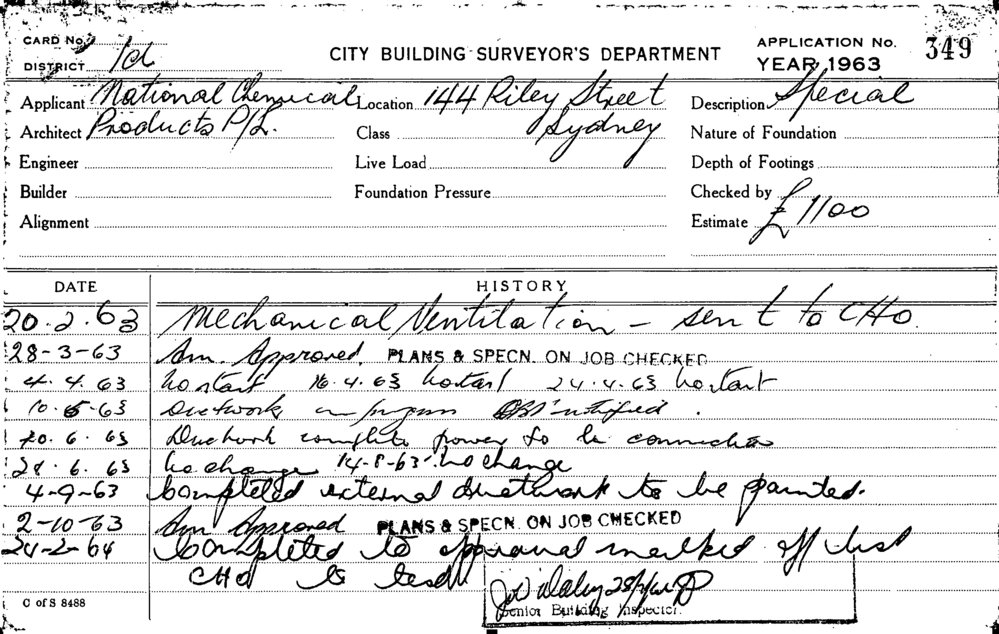 CARD No.
DISTRICT 1d
CITY BUILDING SURVEYOR'S DEPARTMENT
APPLICATION No. 349
YEAR 1963
Applicant National Chemical Location 144 Riley Street Description Special
Architect Products P/L. Class Sydney Nature of Foundation
Engineer Live Load Depth of Footings
Builder Foundation Pressure Checked by
Alignment Estimate £1100
DATE HISTORY
20.2.63 Mechanical Ventilation – sent to CHO
28-3-63 Am. Approved. PLANS & SPECN. ON JOB CHECKED
4.4.63 No start 16.4.63 No start 24.4.63 No start
10.5.63 Ductwork in notified.
20.6.63 Ductwork complete power to be connected
28.6.63 No change 14-8-63 No change
4-9-63 Completed external ductwork to be painted.
2-10-63 Am Approved PLANS & SPECN. ON JOB CHECKED
24-2-64 Completed to approval marked off list
CHO to
Senior Building Inspector.
C of S 8488